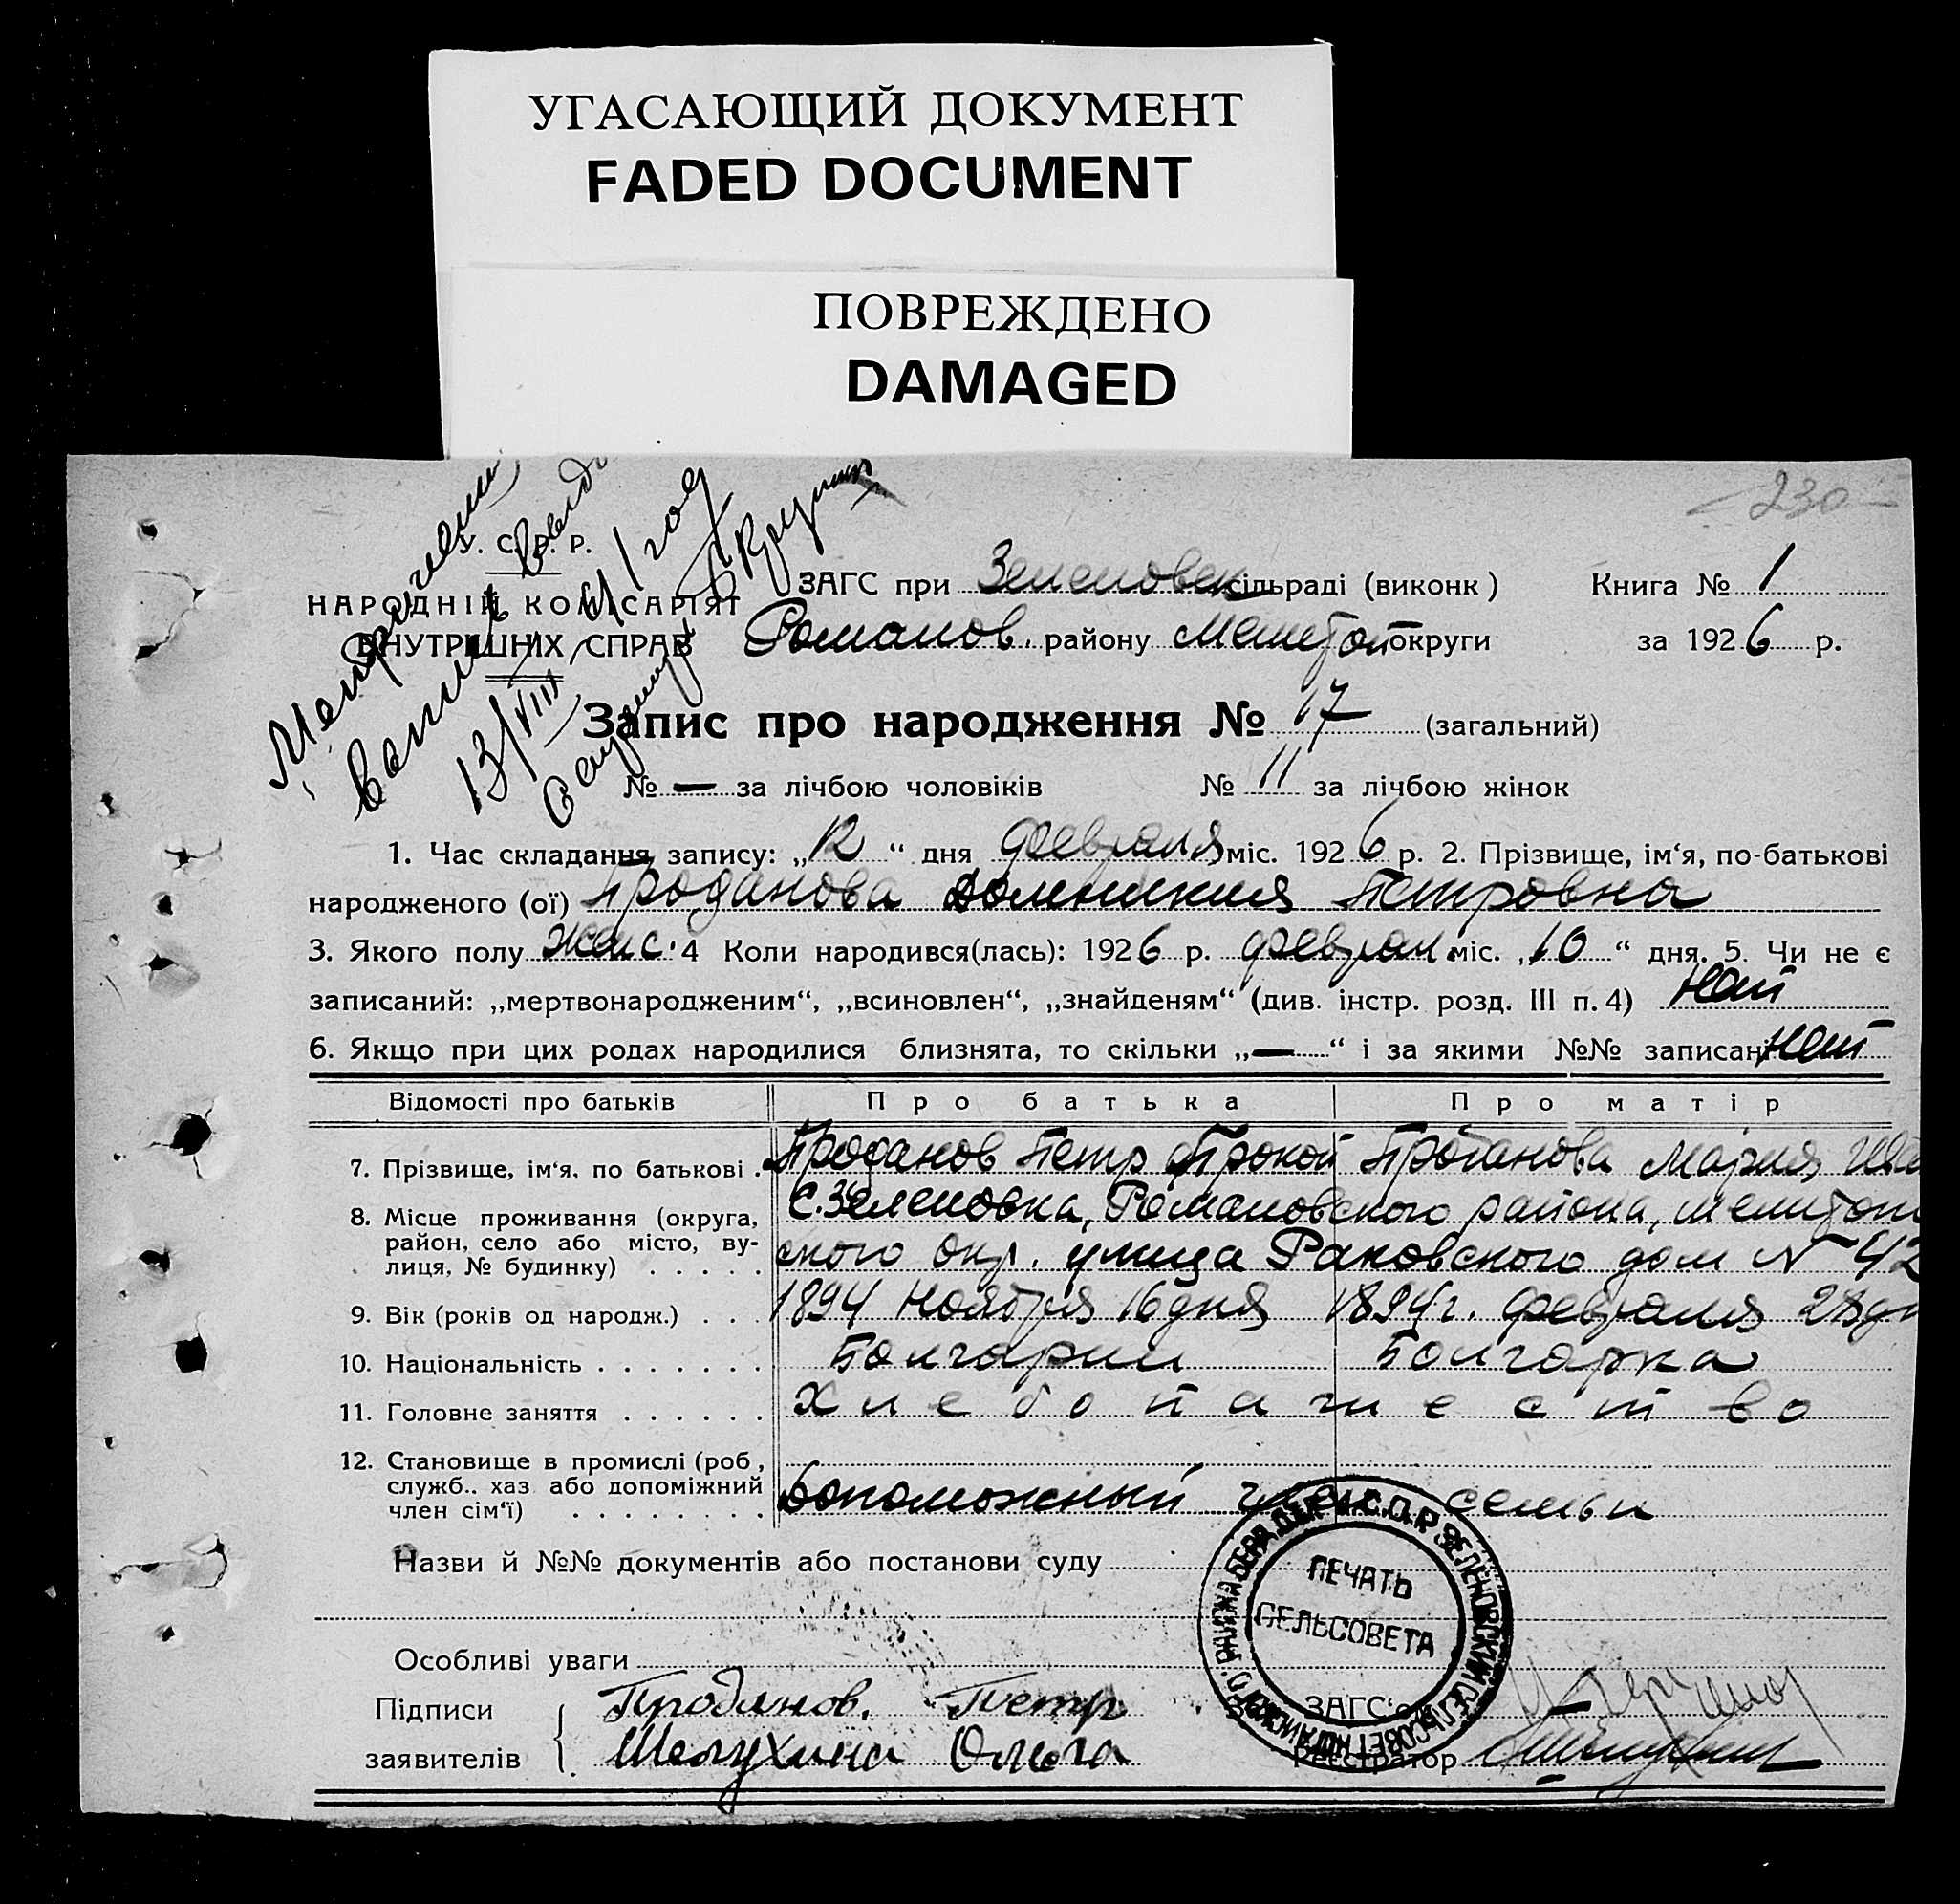 УГАСАЮЩИЙ ДОКУМЕНТ
FADED DOCUMENT
ПОВРЕЖДЕНО
DAMAGED
230
У. С. Р. Р.
НАРОДНІЙ КОМІСАРІЯТ
ВНУТРІШНІХ СПРАВ
13/VIII
ЗАГС при Зеленовск сільраді (виконк) Книга № 1
Романов. району Мелитоп округи за 1926 р.
Запис про народження № 17 (загальний)
№ — за лічбою чоловіків № 11 за лічбою жінок
1. Час складання запису: „12“ дня февраля міс. 1926 р. 2. Прізвище, ім‘я, по-батькові
народженого (ої) Проданова Доменикия Петровна
3. Якого полу женс. 4 Коли народився(лась): 1926 р. феврал. міс. „10“ дня. 5. Чи не є
записаний: „мертвонародженим“, „всиновлен“, „знайденям“ (див. інстр. розд. III п. 4) нет
6. Якщо при цих родах народилися близнята, то скільки „—“ і за якими №№ записані нет
Відомості про батьків Про батька Про матір
7. Прізвище, ім‘я, по батькові . Проданов Петр Прокоп Проданова Мария Ива
8. Місце проживання (округа, С. Зеленовка, Романовского района, Мелитоп
район, село або місто, ву- ского окр. улица Раковского дом № 42
лиця, № будинку) . . . . .
9. Вік (років од народж.) . . . 1894 Ноября 16 дня 1894 г. февраля 28 дн
10. Національність . . . . . . . Болгарин Болгарка
11. Головне заняття . . . . . . Хлебопашество
12. Становище в промислі (роб,
служб.. хаз або допоміжний Допоможный член семьи
член сім‘ї) . . . . . . . .
Назви й №№ документів або постанови суду
ПЕЧАТЬ
СЕЛЬСОВЕТА
Особливі уваги
Підписи Проданов. Петр ЗАГС‘ом
заявителів Шелухина Ольга Реєстратор